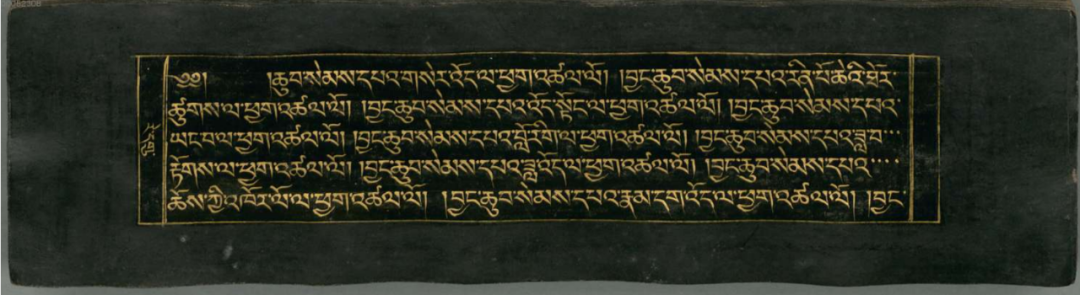 ༄༅། །ཆུབ་སེམས་དཔའ་གསེར་འོད་ལ་ཕྱག་འཚལ་ལོ། །བྱང་ཆུབ་སེམས་དཔའ་རིན་པོ་ཆེའི་
ཚུགས་ལ་ཕྱག་འཚལ་ལོ། །བྱང་ཆུབ་སེམས་དཔའ་འོད་སྟོང་ལ་ཕྱག་འཚལ་ལོ། །བྱང་ཆུབ་སེམས་དཔའ་
ཡང་བ་ལ་ཕྱག་འཚལ་ལོ། །བྱང་ཆུབ་སེམས་དཔའ་བློ་གྲོས་ལ་ཕྱག་འཚལ་ལོ། །བྱང་ཆུབ་སེམས་དཔའ་ཟླ་བ་
རྟོགས་ལ་ཕྱག་འཚལ་ལོ། །བྱང་ཆུབ་སེམས་དཔའ་ཟླ་འོད་ལ་ཕྱག་འཚལ་ལོ། །བྱང་ཆུབ་སེམས་དཔའ་
ཆོས་ཀྱི་འཁོར་ལོ་ལ་ཕྱག་འཚལ་ལོ། །བྱང་ཆུབ་སེམས་དཔའ་རྣམ་དག་འོད་ལ་ཕྱག་འཚལ་ལོ། །བྱང་